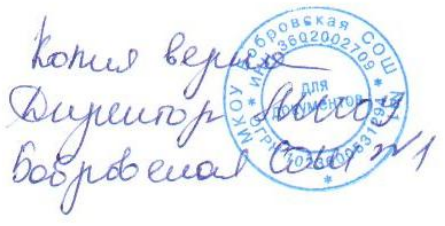 Копия верна
Директор
Бобровская СОШ №1
МКОУ Бобровская СОШ №1
ИНН 3602002709
ДЛЯ
ДОКУМЕНТОВ